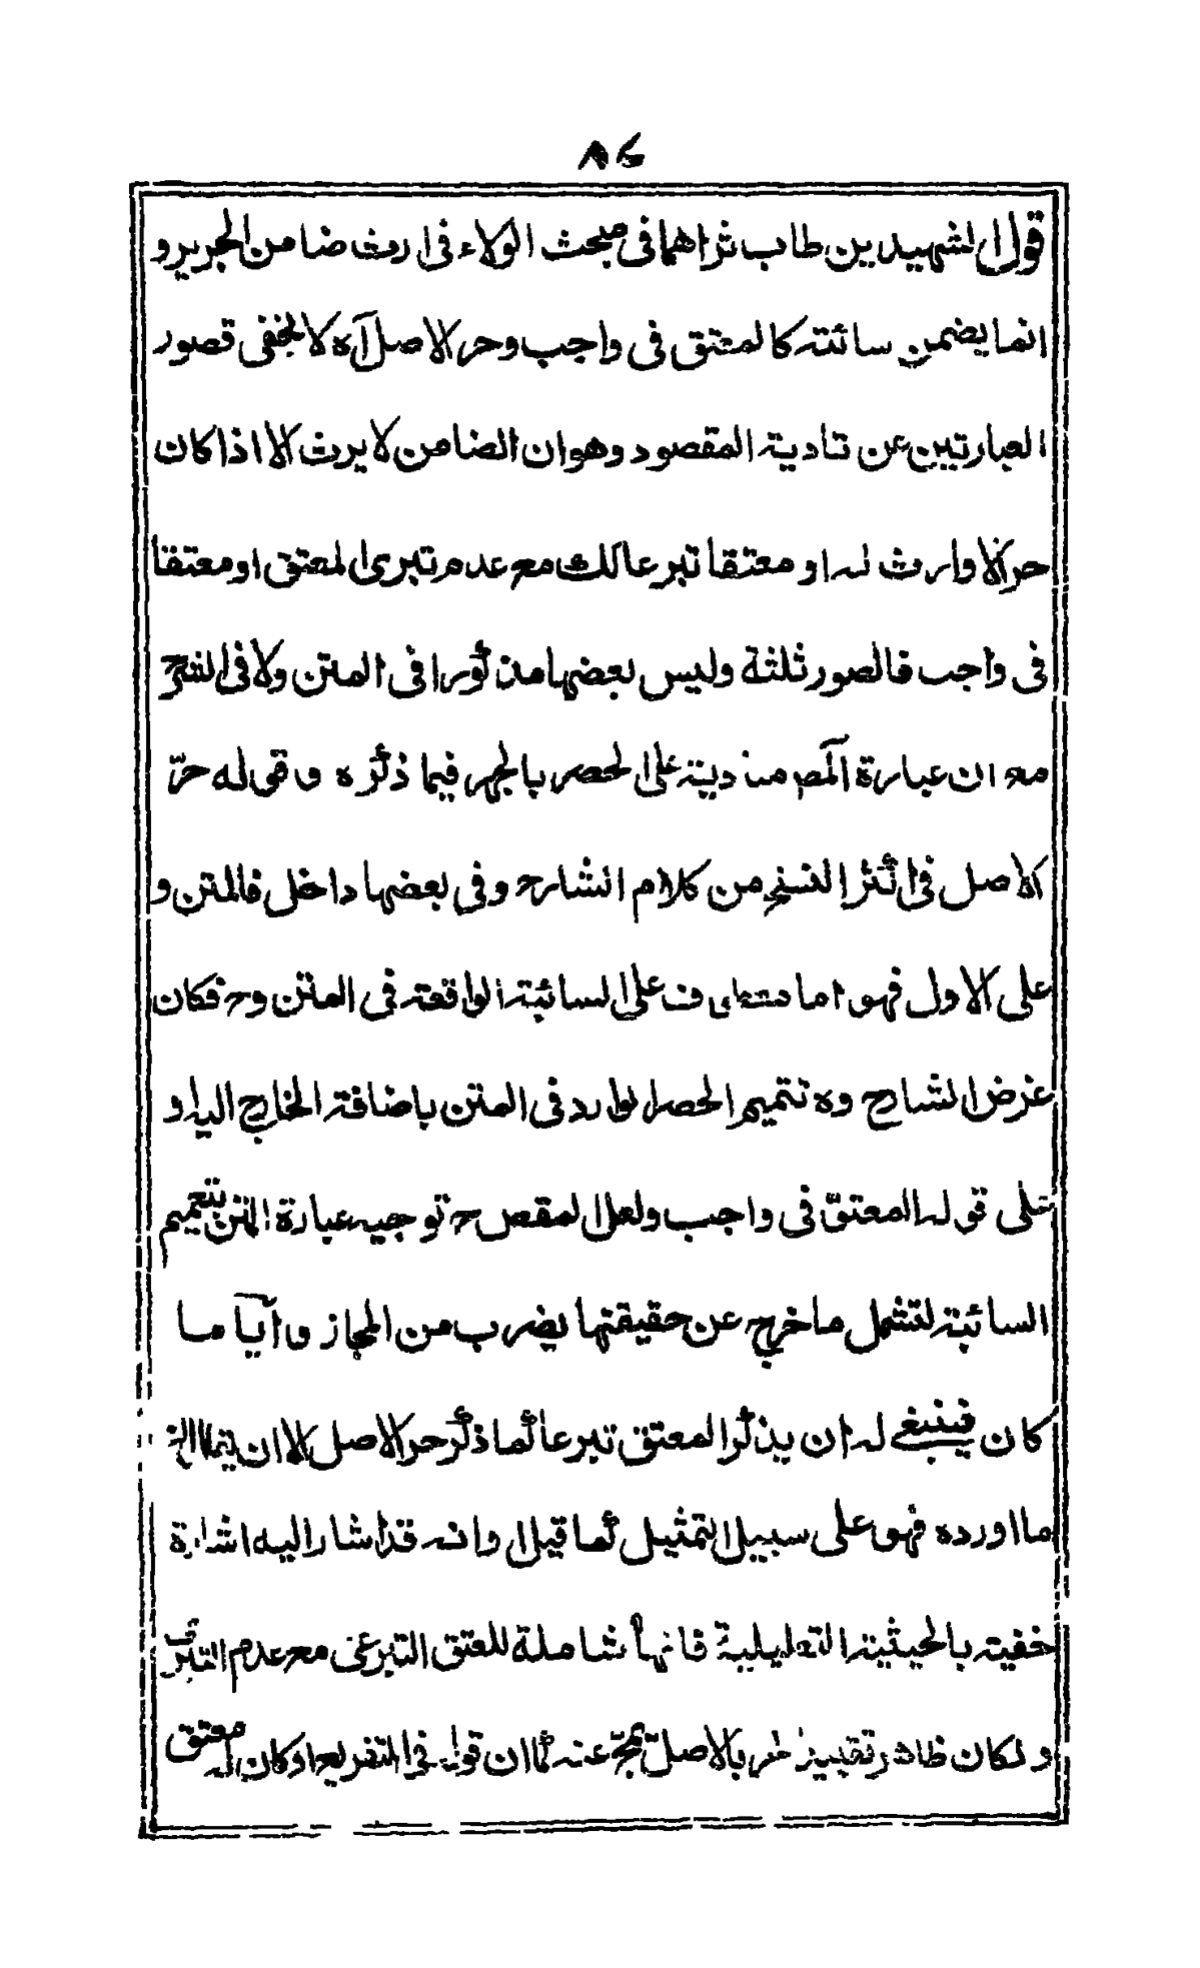 ٨٤
قول الشهيدين طاب ثراهما فى مبحث الولاء فى ارث ضامن الجرير و
انما يضمن سائبته كالمعتق فى واجب وحر الاصل آه لا يخفى قصور
العبارتين عن تادية المقصود وهو ان الضامن لا يرث الا اذا كان
حر الا وارث له او معتقا تبرعا لك مع عدم تبرى المعتق او معتقا
فى واجب فالصور ثلثة وليس بعضها مذكورا فى المتن ولا فى الشرح
مع ان عبارة المصـ منادية على الحصر بالجهر فيما ذكره و قوله حرّ
الاصل فى اكثر النسخ من كلام الشارح وفى بعضها داخل فالمتن و
على الاول فهو اما معطوف على السائبة الواقعة فى المتن وح فكان
غرض الشارح ره تتميم الحصر الوارد فى المتن باضافة الخارج اليه او
على قوله المعتق فى واجب ولعل المقص ح توجيه عبارة المتن بتعميم
السائبة لتشمل ما خرج عن حقيقتها بضرب من المجاز و اَيّا ما
كان فينبغى له ان يذكر المعتق تبرعا كما ذكر حر الاصل الا ان
ما اورده فهو على سبيل التمثيل كما قيل او انه قد اشار اليه اشارة
خفية بالحيثية التعليلية فانها شاملة للعتق التبرعى مع عدم التبرّى
و لكان ظاهر تقييد حر بالاصل عنه كما ان قوله فى التفريع او كان له معتق